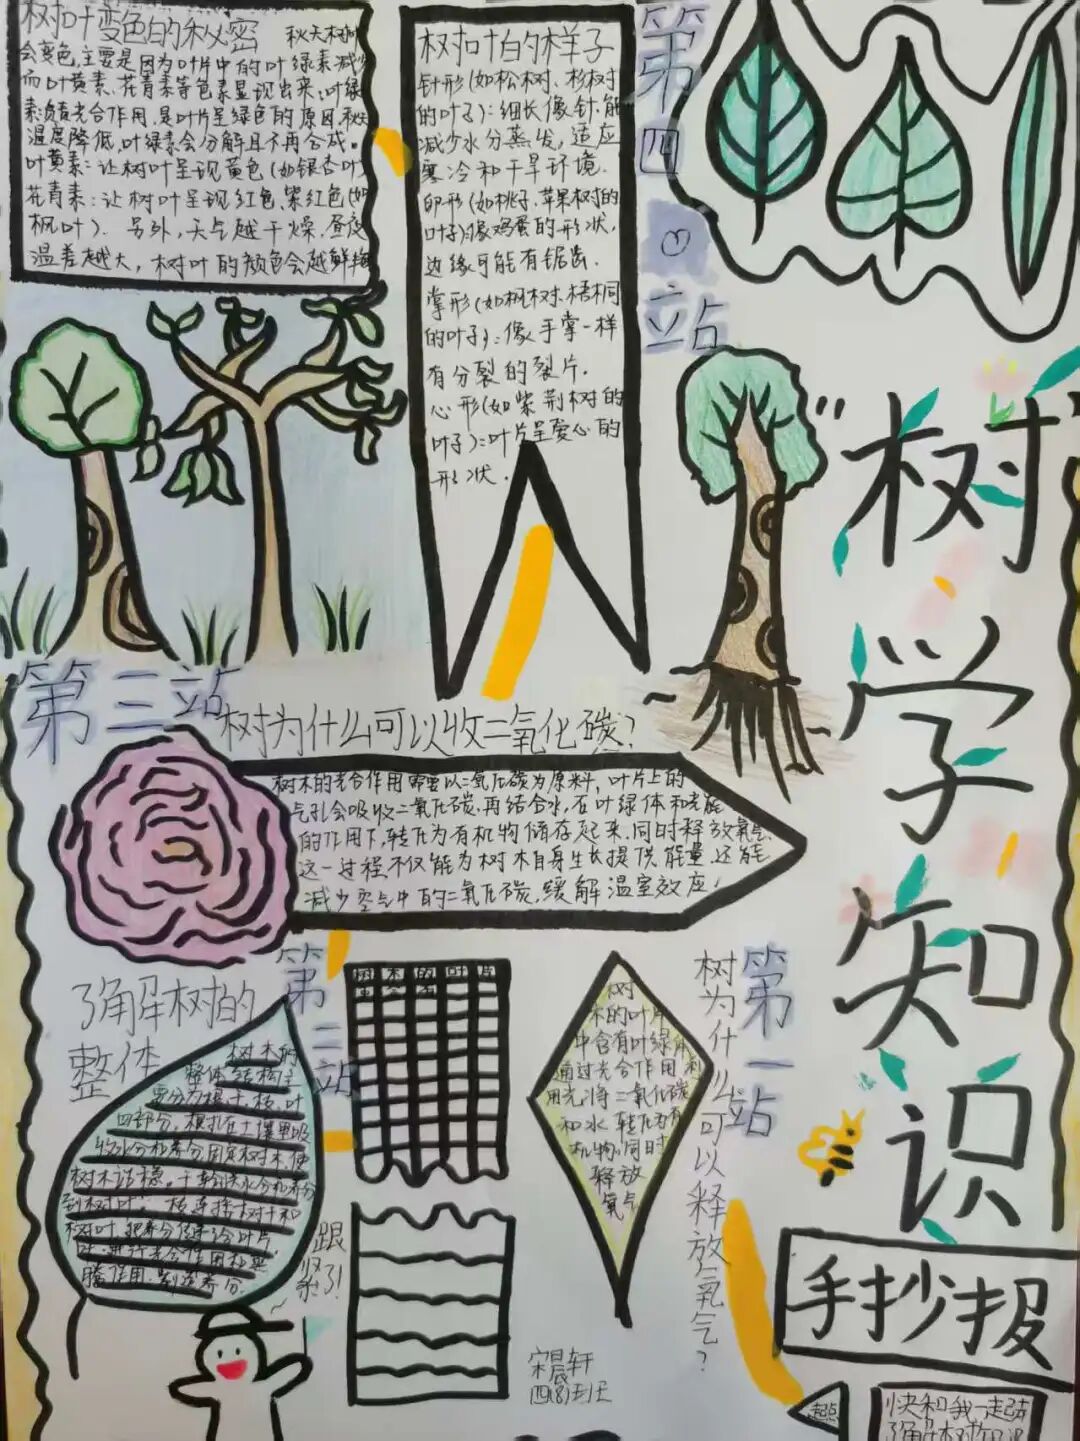 树叶变色的秘密
秋天树叶
会变色,主要是因为叶片中的叶绿素减少
而叶黄素、花青素等色素显现出来,叶绿
素负责光合作用,是叶片呈绿色的原因,秋天
温度降低,叶绿素会分解且不再合成。
叶黄素:让树叶呈现黄色(如银杏叶)
花青素:让树叶呈现红色、紫红色(如
枫叶).另外,天气越干燥,昼夜
温差越大,树叶的颜色会越鲜艳
树叶的样子
针形(如松树、杉树
的叶子):细长像针,能
减少水分蒸发,适应
寒冷和干旱环境.
卵形(如桃子、苹果树的
叶子)像鸡蛋的形状,
边缘可能有锯齿.
掌形(如枫树、梧桐
的叶子):像手掌一样
有分裂的裂片.
心形(如紫荆树的
叶子):叶片呈爱心的
形状.
第四站
"树学知识
手抄报
起点
快和我一起去
了解树知识
第三站
树为什么可以收二氧化碳?
树木的光合作用需要以二氧化碳为原料,叶片上的
气孔会吸收二氧化碳,再结合水,在叶绿体和光能
的作用下,转化为有机物储存起来,同时释放氧气.
这一过程不仅能为树木自身生长提供能量,还能
减少空气中的二氧化碳,缓解温室效应!
第二站
了解树的
整体
树木的
整体结构主
要分为根、干、枝、叶
四部分,根扎在土壤里吸
收水分和养分固定树木,使
树木站稳。干输送水分和养分
到树叶。枝连接树干和
树叶,把养分传递给叶片
叶:进行光合作用和蒸
腾作用,制造养分.
跟紧了!
第一站
树为什么可以释放氧气?
树
木的叶片
中含有叶绿体
通过光合作用利
用光将二氧化碳
和水转化为有
机物,同时
释放
氧气
宋晨轩
四(8)班